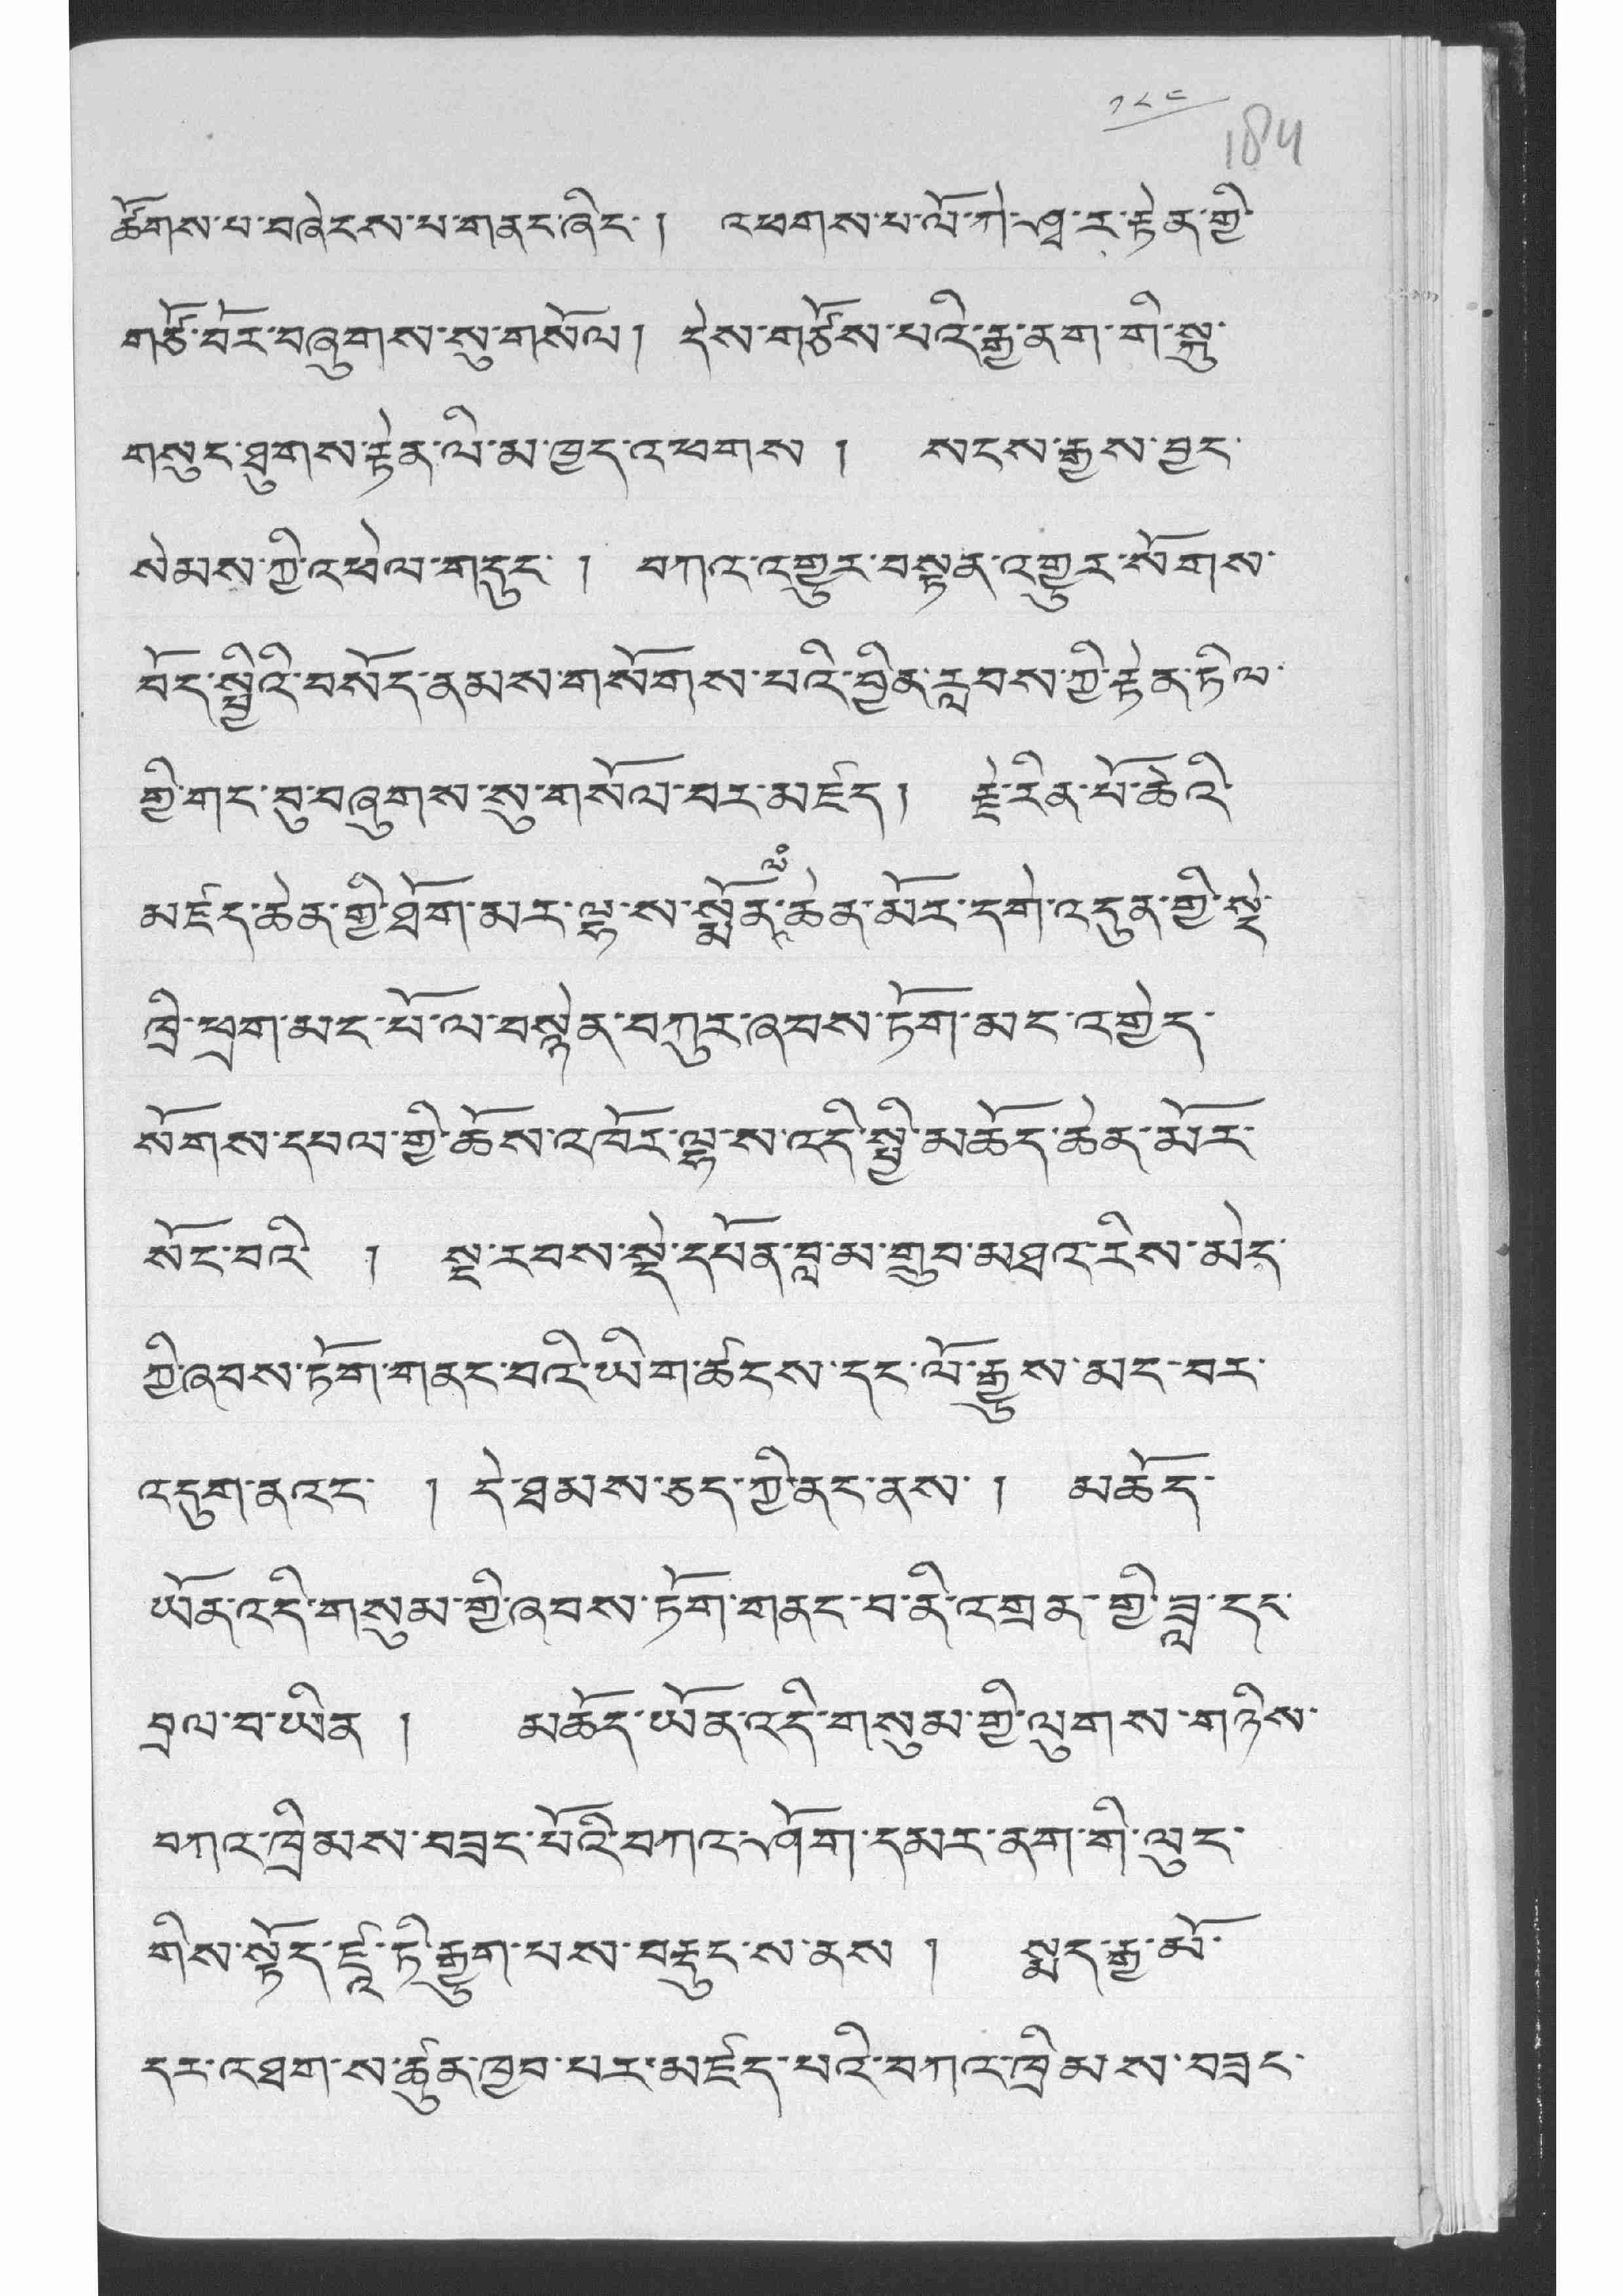 ༡༨༩
184
ཚོགས་པ་བཞེངས་པ་གནང་ཞིང་། འཕགས་པ་ལོ་ཀེ་ཤྭ་ར་རྟེན་གྱི་
གཙོ་བོར་བཞུགས་སུ་གསོལ། དེས་གཙོས་པའི་རྒྱ་ནག་གི་སྐུ་
གསུང་ཐུགས་རྟེན་ལི་མ་ཁྱད་འཕགས། སངས་རྒྱས་བྱང་
སེམས་ཀྱི་འཕེལ་གདུང་། བཀའ་འགྱུར་བསྟན་འགྱུར་སོགས་
བོད་སྤྱིའི་བསོད་ནམས་གསོགས་པའི་བྱིན་རླབས་ཀྱི་རྟེན་ཏིལ་
གྱི་གང་བུ་བཞུགས་སུ་གསོལ་བར་མཛད། རྗེ་རིན་པོ་ཆེའི་
མཛད་ཆེན་གྱི་ཐོག་མར་ལྷ་ས་སྨོན་ལམ་ཆེན་མོར་དགེ་འདུན་གྱི་སྡེ་
ཁྲི་ཕྲག་མང་པོ་ལ་བསྙེན་བཀུར་ཞབས་ཏོག་མང་འགྱེད་
སོགས་དཔལ་གྱི་ཆོས་འཁོར་ལྷ་ས་འདི་སྤྱི་མཆོད་ཆེན་མོར་
སོང་བའི། སྔ་རབས་སྡེ་དཔོན་བླ་མ་གྲུབ་མཐའ་རིས་མེད་
ཀྱི་ཞབས་ཏོག་གནང་བའི་ཡིག་ཚངས་དང་ལོ་རྒྱུས་མང་བར་
འདུག་ནའང་། དེ་ཐམས་ཅད་ཀྱི་ནང་ནས། མཆོད་
ཡོན་འདི་གསུམ་གྱི་ཞབས་ཏོག་གནང་བ་ནི་འགྲན་གྱི་ཟླ་དང་
བྲལ་བ་ཡིན། མཆོད་ཡོན་འདི་གསུམ་གྱི་ལུགས་གཉིས་
བཀའ་ཁྲིམས་བཟང་པོའི་བཀའ་ཤོག་དམར་ནག་གི་ལུང་
གིས་སྟོད་ཛཱ་ཏི་རྒྱུག་པས་བརྡུང་ས་ནས། སྨད་རྒྱ་མོ་
དར་འཐག་ས་ཚུན་ཁྱབ་པར་མཛད་པའི་བཀའ་ཁྲིམས་བཟང་